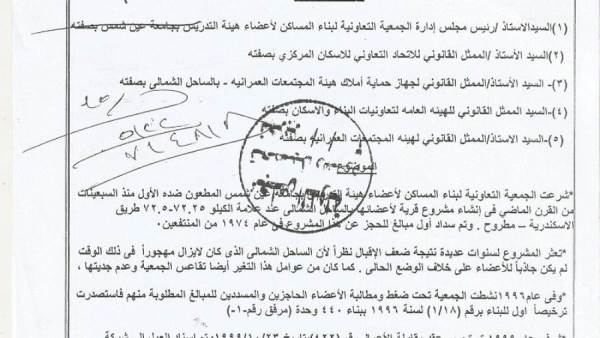 (١)السيد الاستاذ/ رئيس مجلس إدارة الجمعية التعاونية لبناء المساكن لأعضاء هيئة التدريس بجامعة عين شمس بصفته
(٢)السيد الأستاذ /الممثل القانوني للاتحاد التعاوني للاسكان المركزي بصفته
(٣)- السيد الأستاذ/الممثل القانوني لجهاز حماية أملاك هيئة المجتمعات العمرانيه - بالساحل الشمالى بصفته
(٤)- السيد الممثل القانوني للهيئه العامه لتعاونيات البناء والاسكان بصفته
(٥)-السيد الاستاذ/الممثل القانوني لهيئه المجتمعات العمرانيه بصفته
الموضوع
*شرعت الجمعية التعاونية لبناء المساكن لأعضاء هيئة التدريس بجامعة عين شمس المطعون ضده الأول منذ السبعينات
من القرن الماضي فى إنشاء مشروع قرية لأعضائها بالساحل الشمالى عند علامة الكيلو ٧٢,٢٥-٧٢,٥ طريق
الاسكندرية - مطروح . وتم سداد أول مبالغ للحجز عن هذا المشروع فى عام ١٩٧٤ من المنتفعين.
*تعثر المشروع لسنوات عديدة نتيجة ضعف الإقبال نظراً لأن الساحل الشمالى الذى كان لايزال مهجوراً فى ذلك الوقت
لم يكن جاذباً للأعضاء على خلاف الوضع الحالى . كما كان من عوامل هذا التغير أيضا تقاعس الجمعية وعدم جديتها ،
*وفى عام ١٩٩٦نشطت الجمعية تحت ضغط ومطالبة الأعضاء الحاجزين والمسددين للمبالغ المطلوبة منهم فاستصدرت
ترخيصاً أول للبناء برقم (١/١٨) لسنة ١٩٩٦ ببناء ٤٤٠ وحدة (مرفق رقم-١-)